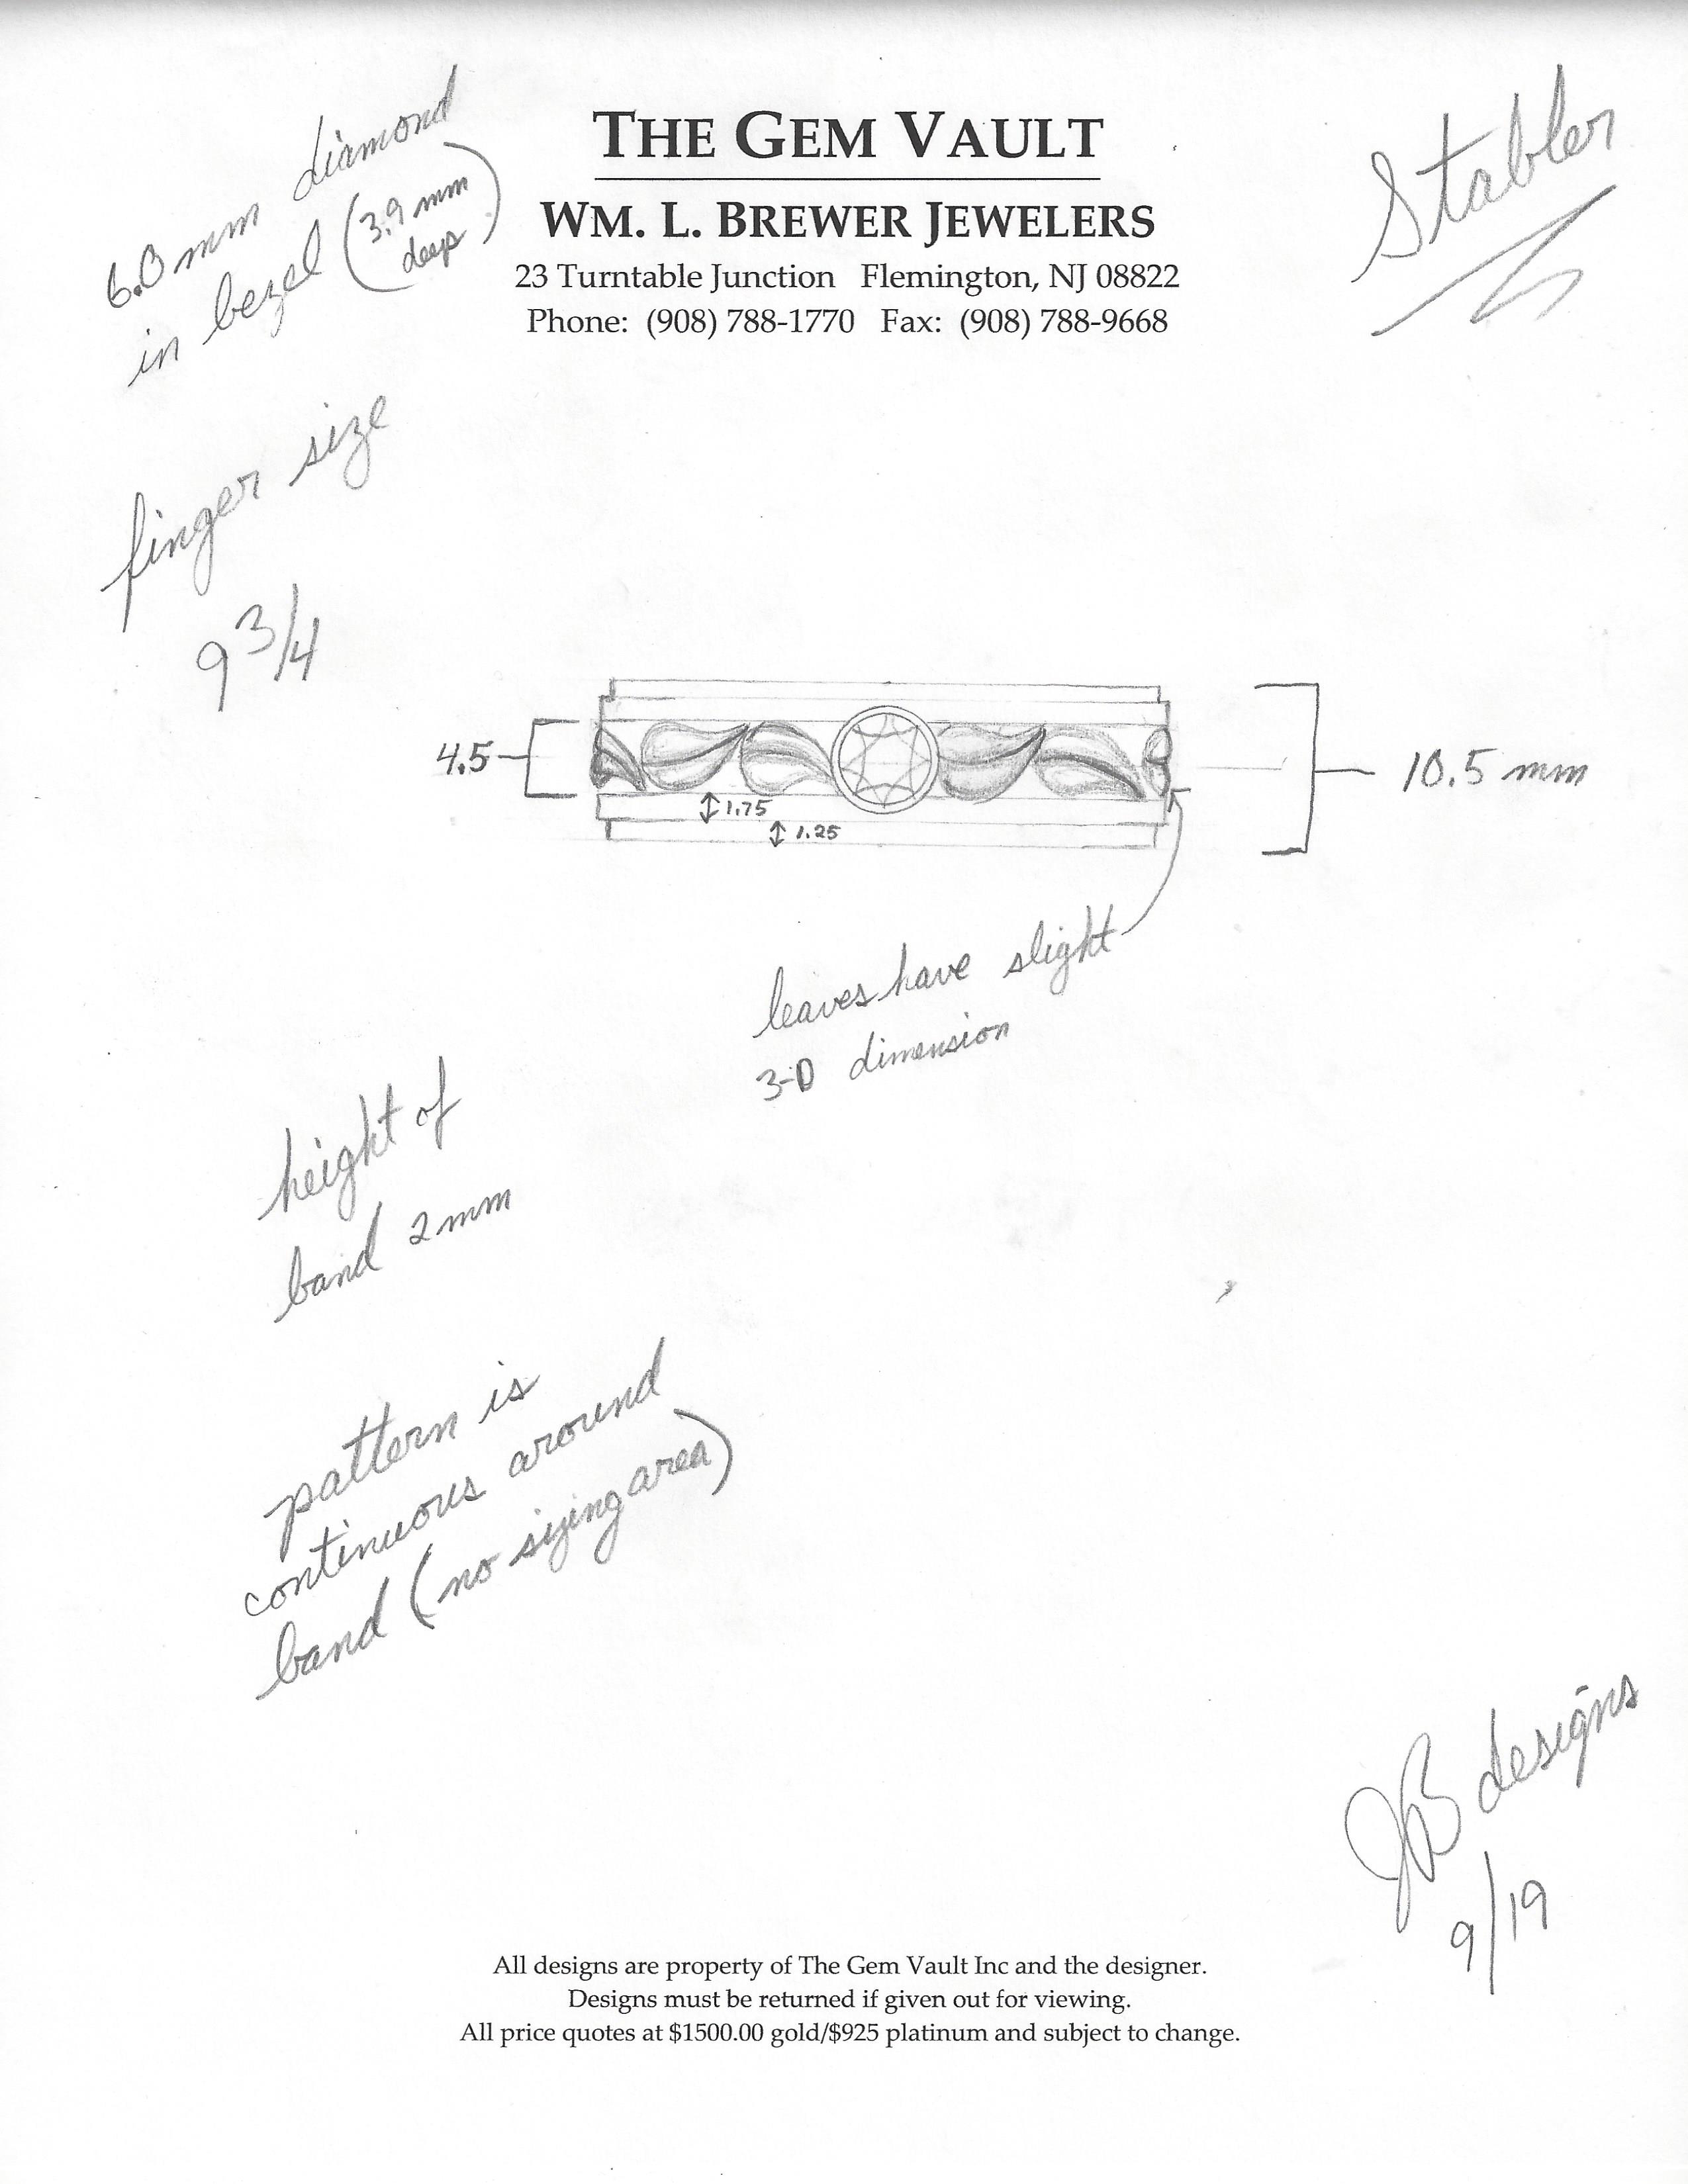 THE GEM VAULT
WM. L. BREWER JEWELERS
23 Turntable Junction Flemington, NJ 08822
Phone: (908) 788-1770 Fax: (908) 788-9668
Stabler
6.0 mm diamond
in bezel (3.9 mm
deep)
finger size
9 3/4
4.5
1.75
1.25
10.5 mm
leaves have slight
3-D dimension
height of
band 2 mm
pattern is
continuous around
band (no sizing area)
JB designs
9/19
All designs are property of The Gem Vault Inc and the designer.
Designs must be returned if given out for viewing.
All price quotes at $1500.00 gold/$925 platinum and subject to change.